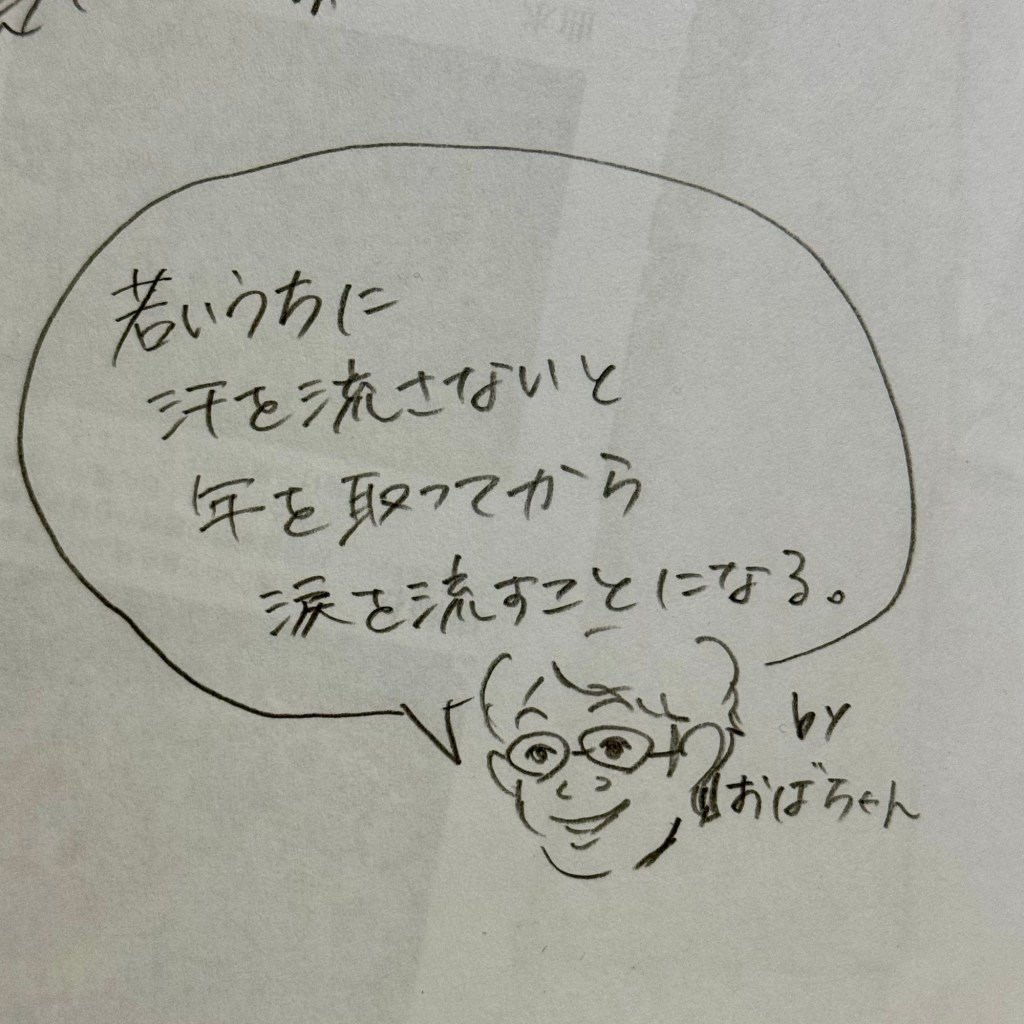 若いうちに
汗を流さないと
年を取ってから
涙を流すことになる。
by
おばちゃん